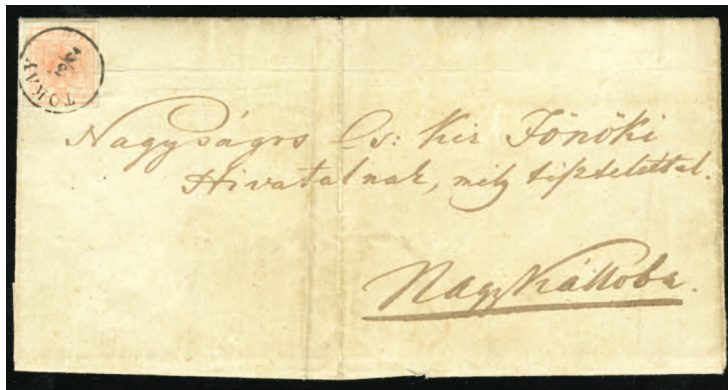 TOKAJ
Nagyságos Cs: Kir Fönöki
Hivatalnak, mély tisztelettel.
Nagy Kállóba.